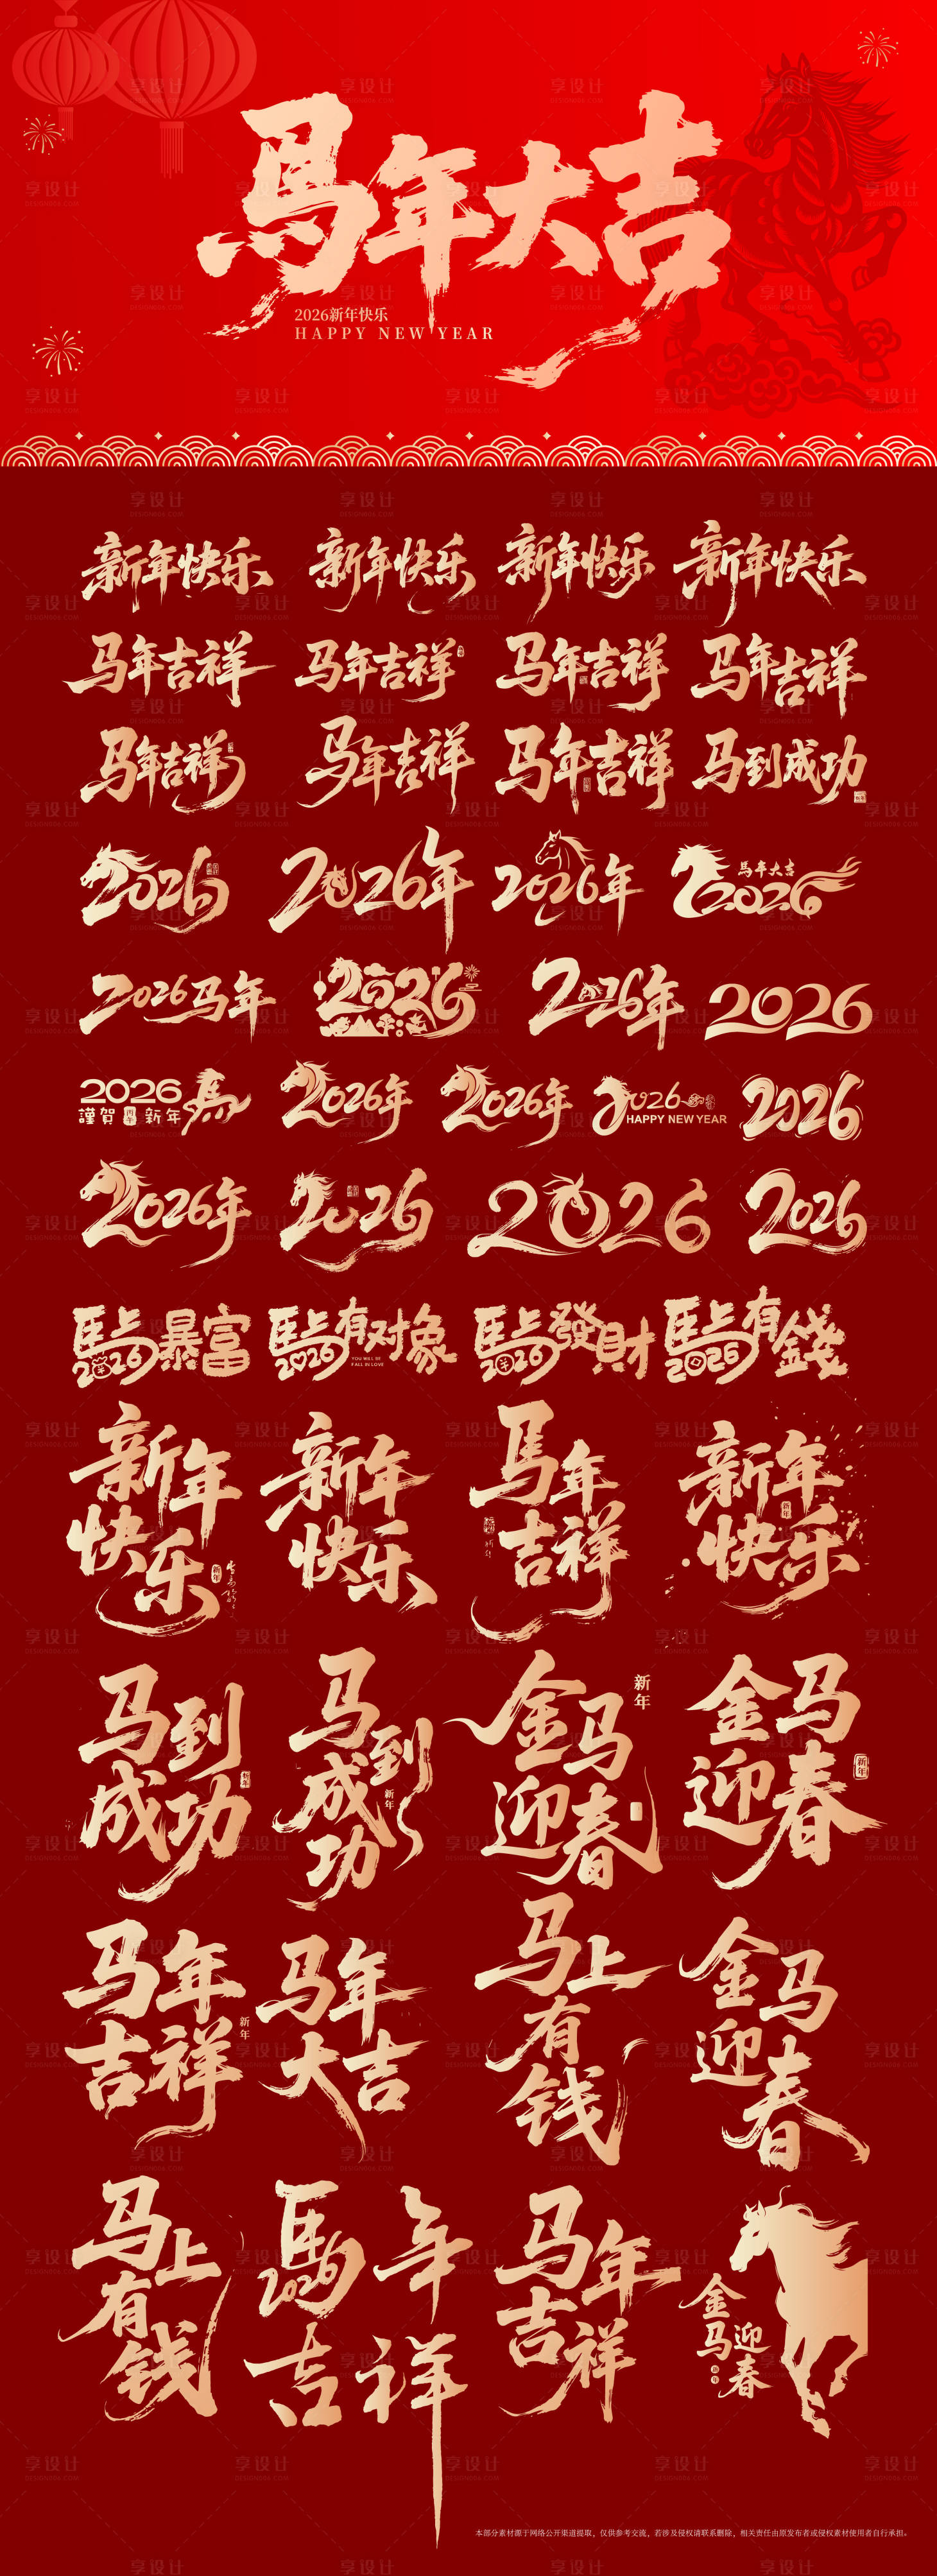 馬年大吉
2026新年快乐
HAPPY NEW YEAR
新年快乐 新年快乐 新年快乐 新年快乐
马年吉祥 马年吉祥 马年吉祥 马年吉祥
马年吉祥 马年吉祥 马年吉祥 马到成功
2026 2026年 2026年 馬年大吉 2026
2026马年 2026 2026年 2026
2026 馬
謹賀 丙午 新年
2026年 2026年 2026 HAPPY NEW YEAR 2026
2026年 2026 2026 2026
馬上暴富 2026
馬上有对象 2026
YOU WILL BE
FALL IN LOVE
馬上發財 2026
馬上有錢 2026
新年
快乐
新年
新年
快乐
马年
吉祥
新年
快乐
新年
马到
成功
新年
马到
成功
新年
金马
迎春
新年
金马
迎春
新年
马年
吉祥
新年
马年
大吉
马上
有
钱
金马
迎春
马上
有
钱
馬年
2026
吉祥
马年
吉祥
金马迎春
新年
本部分素材源于网络公开渠道提取，仅供参考交流，若涉及侵权请联系删除，相关责任由原发布者或侵权素材使用者自行承担。
享设计
DESIGN06.COM